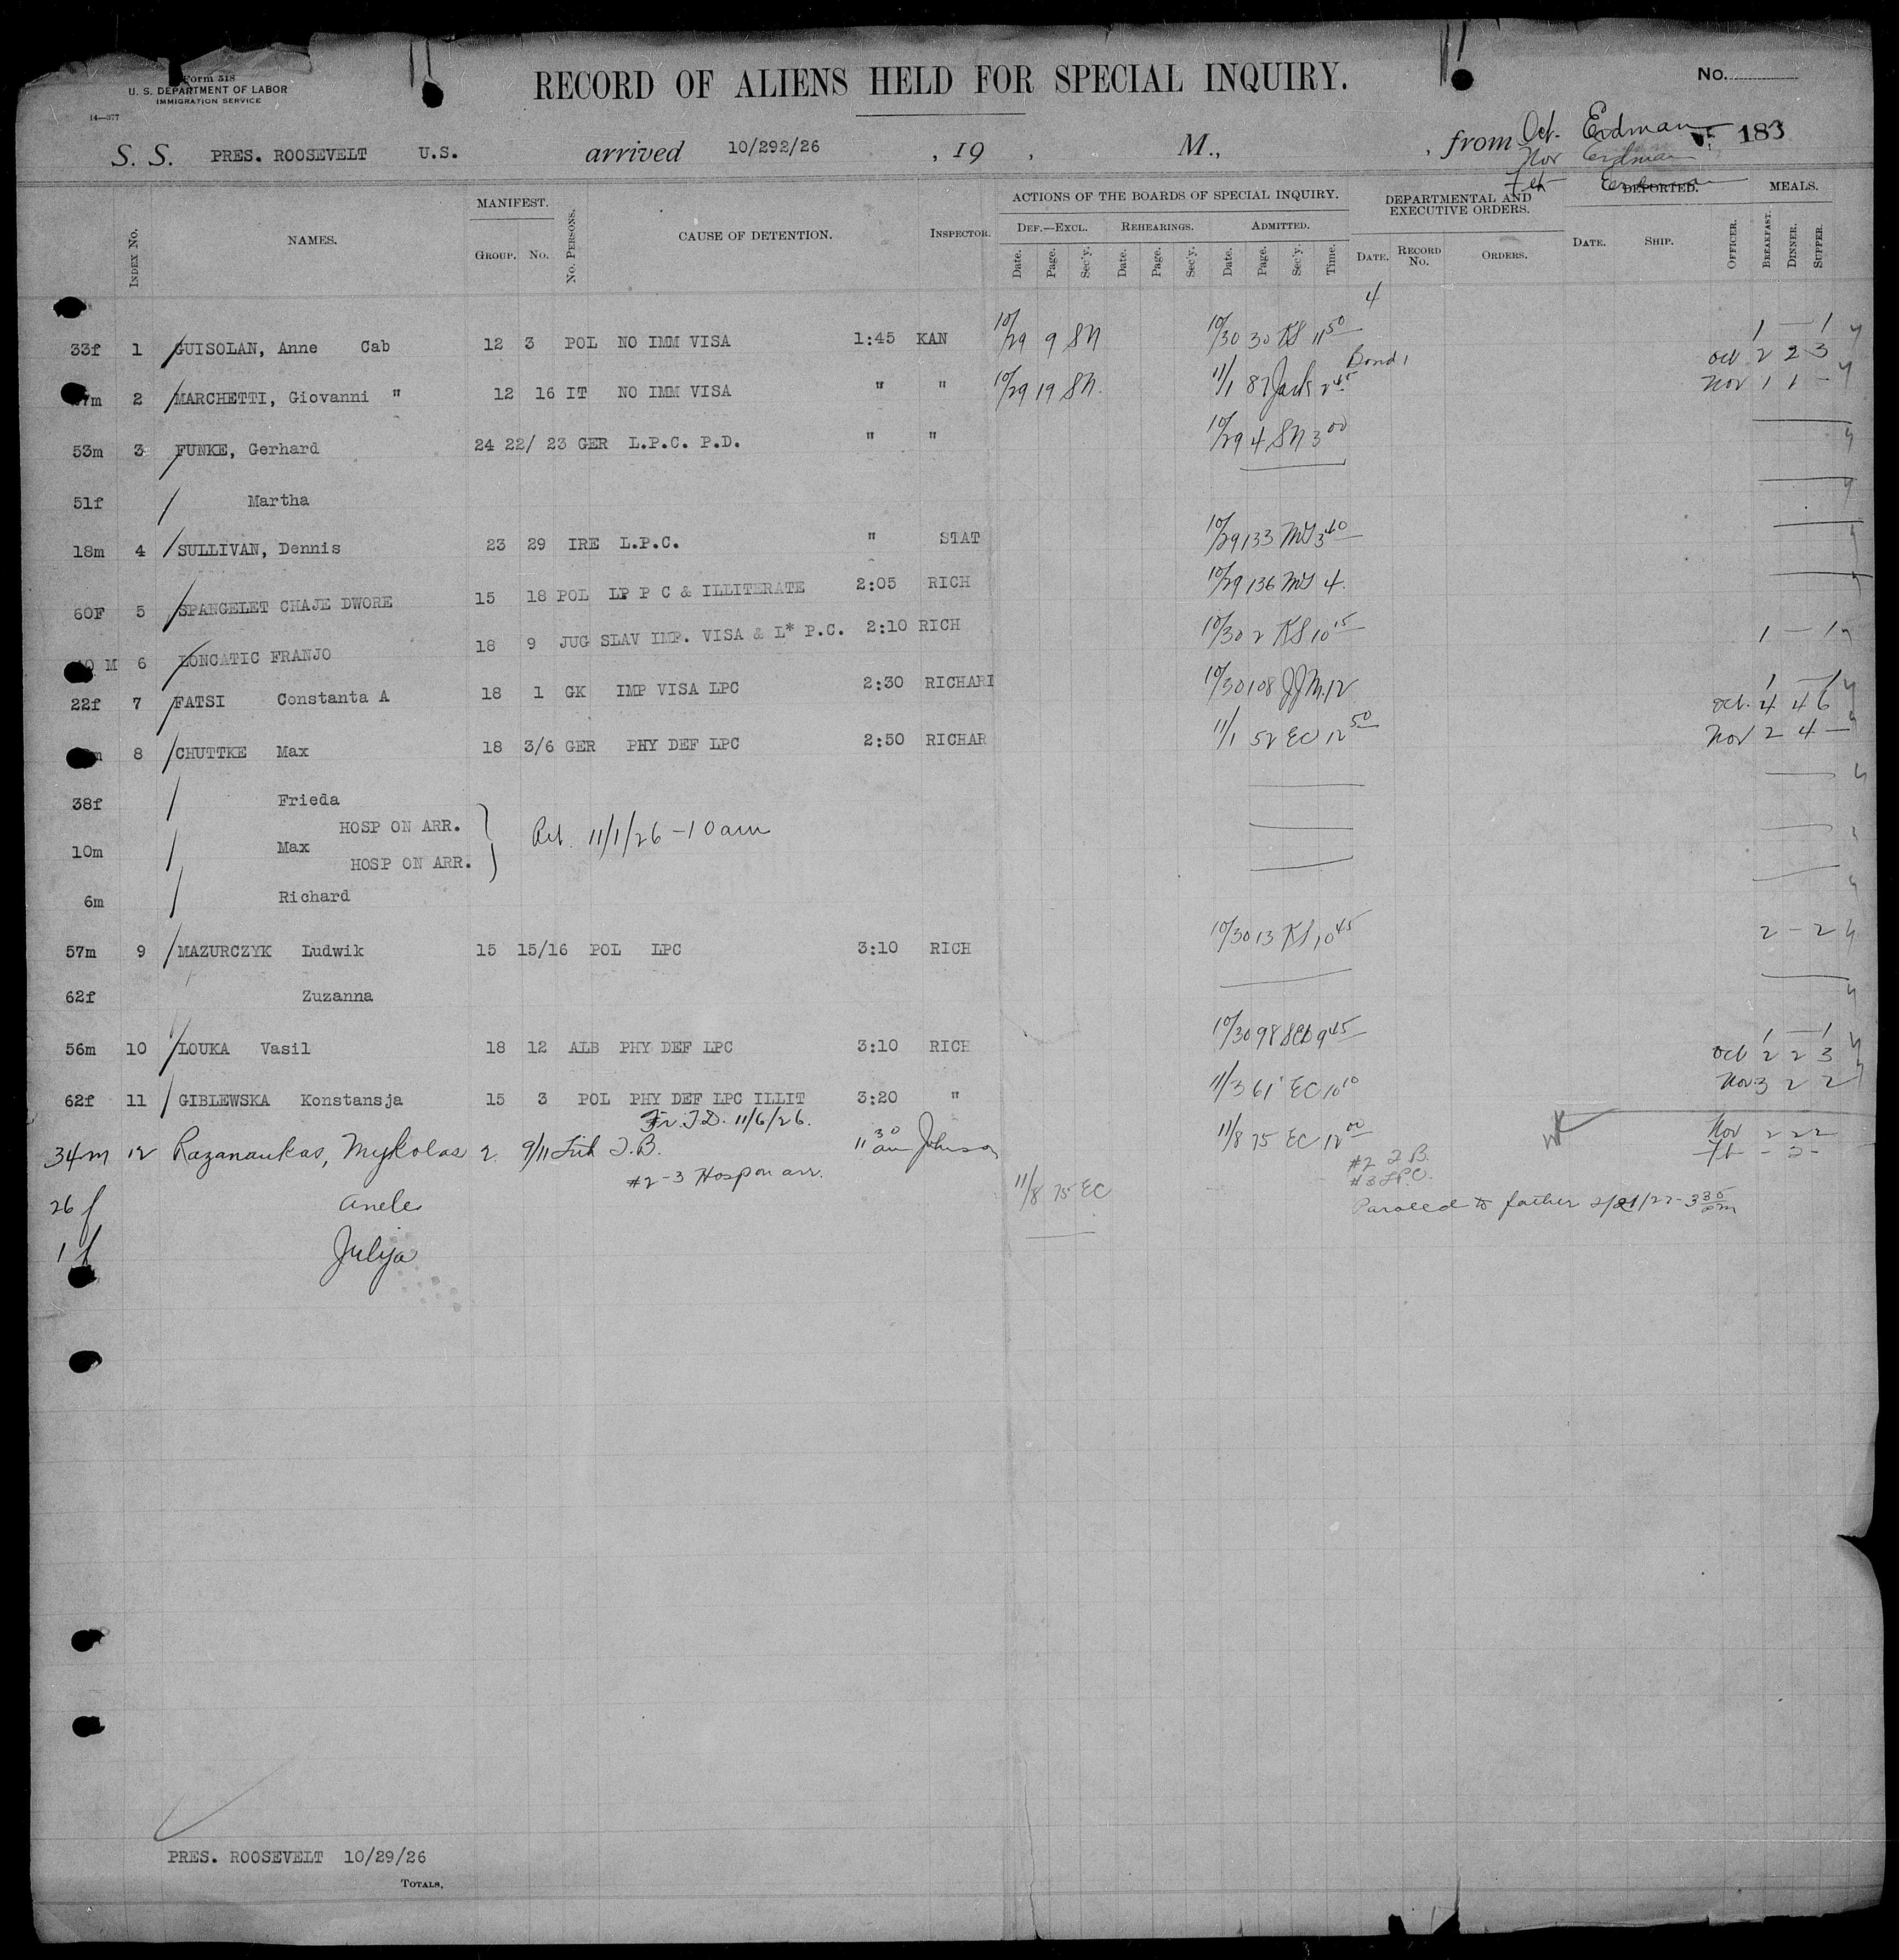 Form 518
U. S. DEPARTMENT OF LABOR
IMMIGRATION SERVICE
14—377
RECORD OF ALIENS HELD FOR SPECIAL INQUIRY.
No.
S. S. PRES. ROOSEVELT U.S. arrived 10/292/26 , 19 , M., , from Oct. Erdman 183
Nov Erdman
Feb Erdman
INDEX No. NAMES. MANIFEST. GROUP. No. No. PERSONS. CAUSE OF DETENTION. INSPECTOR. ACTIONS OF THE BOARDS OF SPECIAL INQUIRY. DEF.—EXCL. Date. Page. Sec'y. REHEARINGS. Date. Page. Sec'y. ADMITTED. Date. Page. Sec'y. Time. DEPARTMENTAL AND EXECUTIVE ORDERS. DATE. RECORD No. ORDERS. DEPORTED. DATE. SHIP. OFFICER. MEALS. BREAKFAST. DINNER. SUPPER.
4
33f 1 GUISOLAN, Anne Cab 12 3 POL NO IMM VISA 1:45 KAN 10/29 9 SN 10/30 30 KS 11 50 1 — 1
2 MARCHETTI, Giovanni " 12 16 IT NO IMM VISA " " 10/29 19 SN. 11/1 87 Jack 2 45 Bond 1 Oct 2 2 3
Nov 1 1 —
53m 3 FUNKE, Gerhard 24 22/ 23 GER L.P.C. P.D. " " 10/29 4 SN 3 00
51f Martha
18m 4 SULLIVAN, Dennis 23 29 IRE L.P.C. " STAT 10/29 133 MS 3 40
60F 5 SPANGELET CHAJE DWORE 15 18 POL LP P C & ILLITERATE 2:05 RICH 10/29 136 MS 4.
M 6 LONCATIC FRANJO 18 9 JUG SLAV IMP. VISA & L* P.C. 2:10 RICH 10/30 2 KS 10 15 1 — 1
22f 7 FATSI Constanta A 18 1 GK IMP VISA LPC 2:30 RICHARI 10/30 108 JJM. 12 1 — 1
8 CHUTTKE Max 18 3/6 GER PHY DEF LPC 2:50 RICHAR 11/1 52 EC 12 50 Oct. 4 4 6
Nov 2 4 —
38f Frieda
HOSP ON ARR.
Ret. 11/1/26 - 10 am
10m Max
HOSP ON ARR.
6m Richard
57m 9 MAZURCZYK Ludwik 15 15/16 POL LPC 3:10 RICH 10/30 13 KS 10 45 2 — 2
62f Zuzanna
56m 10 LOUKA Vasil 18 12 ALB PHY DEF LPC 3:10 RICH 10/30 98 9 45 1 — 1
Oct 2 2 3
62f 11 GIBLEWSKA Konstansja 15 3 POL PHY DEF LPC ILLIT 3:20 " 11/3 61 EC 10 10 Nov. 3 2 2
Fr. T.D. 11/6/26.
34m 12 Razanaukas, Mykolas 2 9/11 Lith T.B. 11 30 am Johnson 11/8 75 EC 12 00 Nov 2 2 2
Fb - 2 -
#2-3 Hosp on arr. #2 T.B.
#3 LPC.
26 f Anele 11/8 75 EC Paroled to father 2/21/27 - 3 35 pm
1 f Julija
PRES. ROOSEVELT 10/29/26
TOTALS,